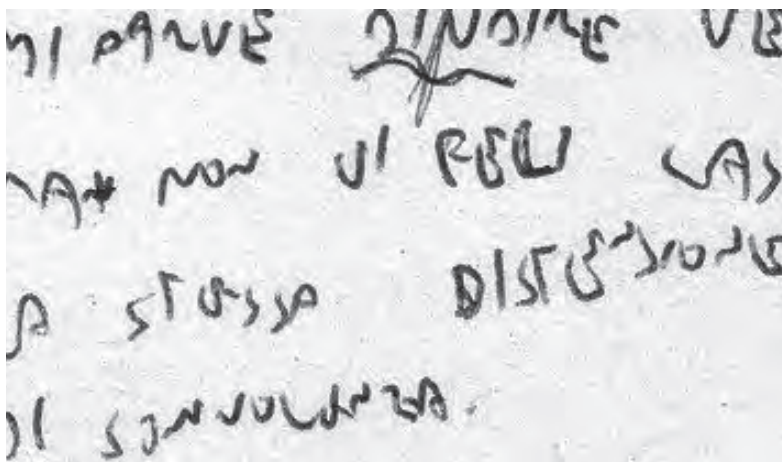 MI PARVE DI UDIRE VE
MA NON VI FECI CAS
A STESSA DISTENSIONE
DI SONNOLENZA.